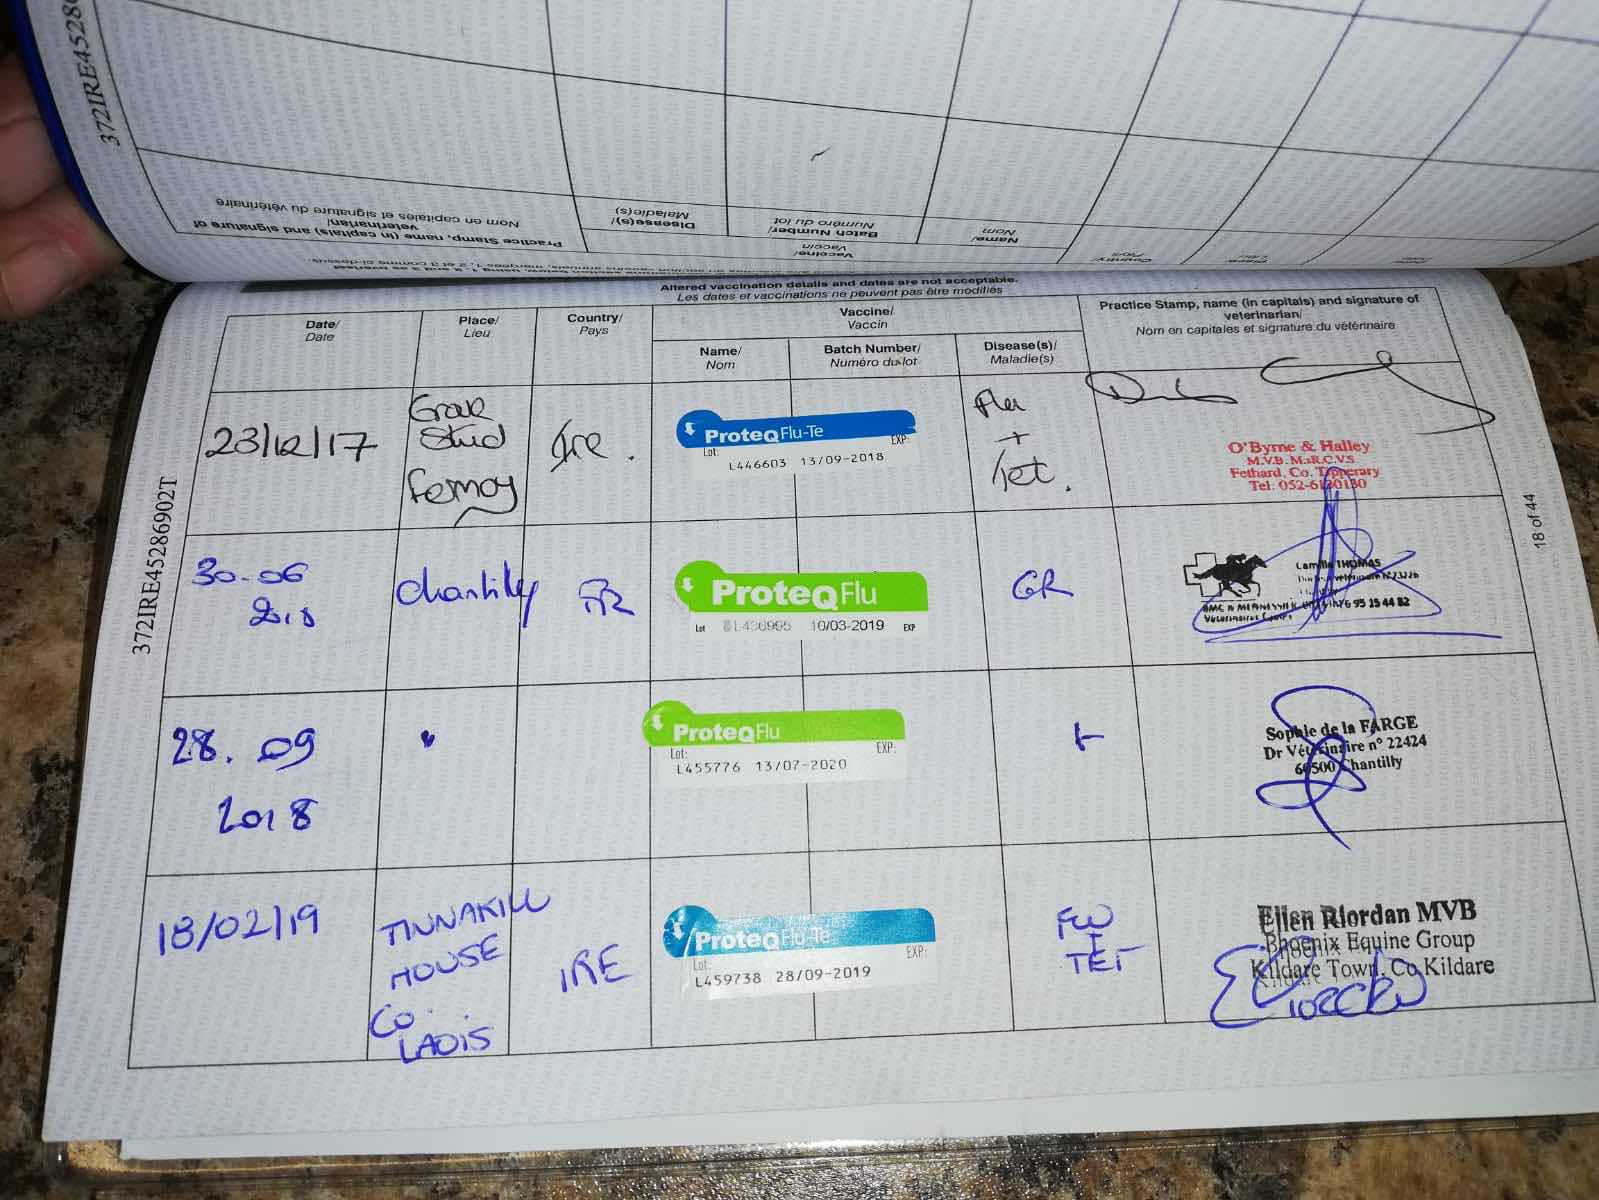 372IRE45286
Nom en capitales et signature du vétérinaire
Practice Stamp, name (in capitals) and signature of
veterinarian/
Maladie(s)
Disease(s)/
Numéro du lot
Batch Number/
Nom
Name/
Vaccin
Vaccine/
Pays
Country/
Altered vaccination details and dates are not acceptable.
Les dates et vaccinations ne peuvent pas être modifiés
Date/
Date
Place/
Lieu
Country/
Pays
Vaccine/
Vaccin
Name/
Nom
Batch Number/
Numéro du lot
Disease(s)/
Maladie(s)
Practice Stamp, name (in capitals) and signature of
veterinarian/
Nom en capitales et signature du vétérinaire
23/12/17
Stud
Fermoy
Ire.
ProteqFlu-Te
Lot:
EXP:
L446603 13/09-2018
Flu
+
Tet.
O'Byrne & Halley
M.V.B. M.R.C.V.S.
Fethard, Co. Tipperary
Tel: 052-6130180
30-06
Chantilly
FR
ProteqFlu
Lot
10/03-2019 EXP
GR
Camille THOMAS
95 15 44 82
28.09
2018
"
ProteqFlu
Lot:
EXP:
L455776 13/07-2020
Sophie de la FARGE
Dr Vétérinaire n° 22424
60500 Chantilly
18/02/19
TINNAKILL
HOUSE
CO.
LAOIS
IRE
ProteqFlu-Te
Lot:
EXP:
L459738 28/09-2019
FLU
TET
Ellen Riordan MVB
Phoenix Equine Group
Kildare Town, Co Kildare
372IRE45286902T
18 of 44